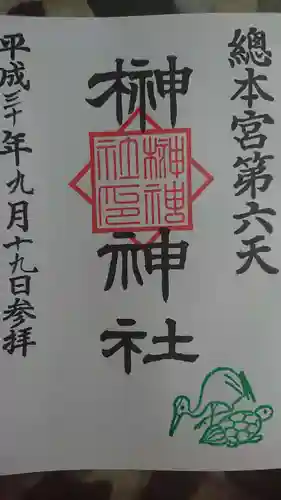 總本宮第六天
榊神社
榊神社印
平成三十年九月十九日参拝